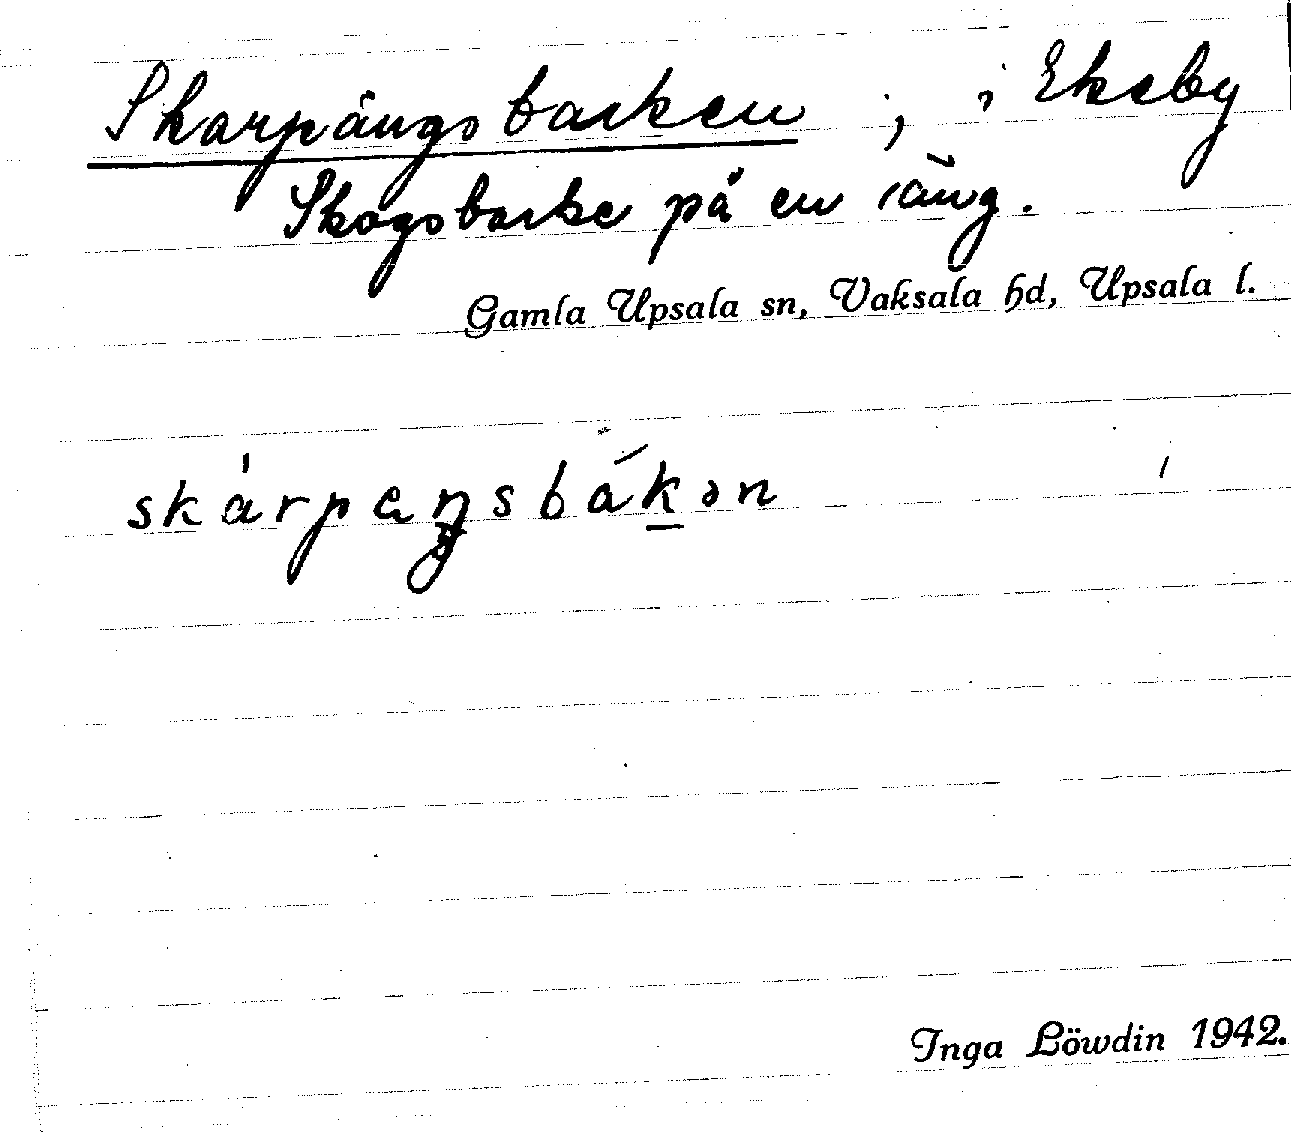 Skarpängsbacken, i Ekeby
Skogsbacke på en äng.
Gamla Upsala sn, Vaksala hd, Upsala l.
skárpaŋsbákən
Inga Löwdin 1942.